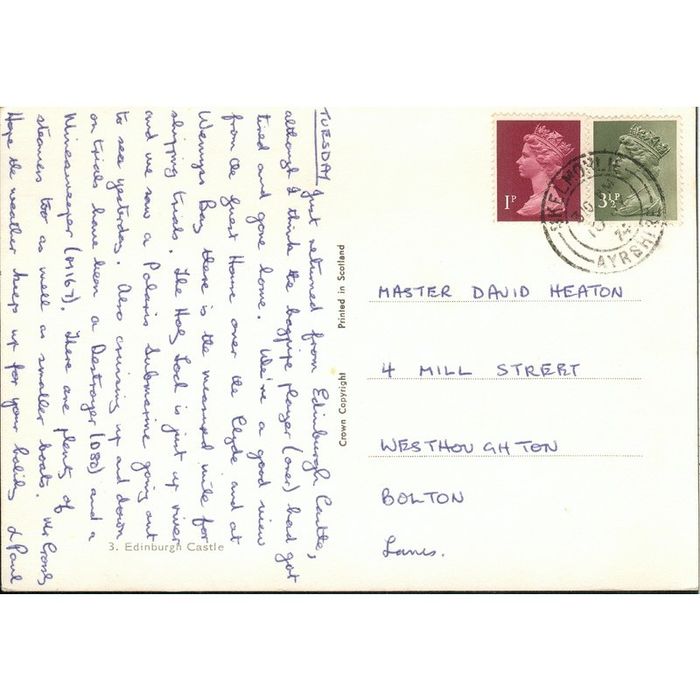 TUESDAY Just returned from Edinburgh Castle,
although I think the bagpipe player (over) had got
tired and gone home. We've a good view
from the Guest House over the Clyde and at
Wemyss Bay there is the measured mile for
shipping trials. The Holy Loch is just up river
and we saw a Polaris Submarine going out
to sea yesterday. Also cruising up and down
on trials have been a Destroyer (D80) and a
Minesweeper (M167). There are plenty of
steamers too as well as smaller boats.
Hope the weather keeps up for your holiday & Paul
3. Edinburgh Castle
Crown Copyright
Printed in Scotland
1P
3½P
SKELMORLIE
AYRSHIRE
MASTER DAVID HEATON
4 MILL STREET
WESTHOUGHTON
BOLTON
Lancs.